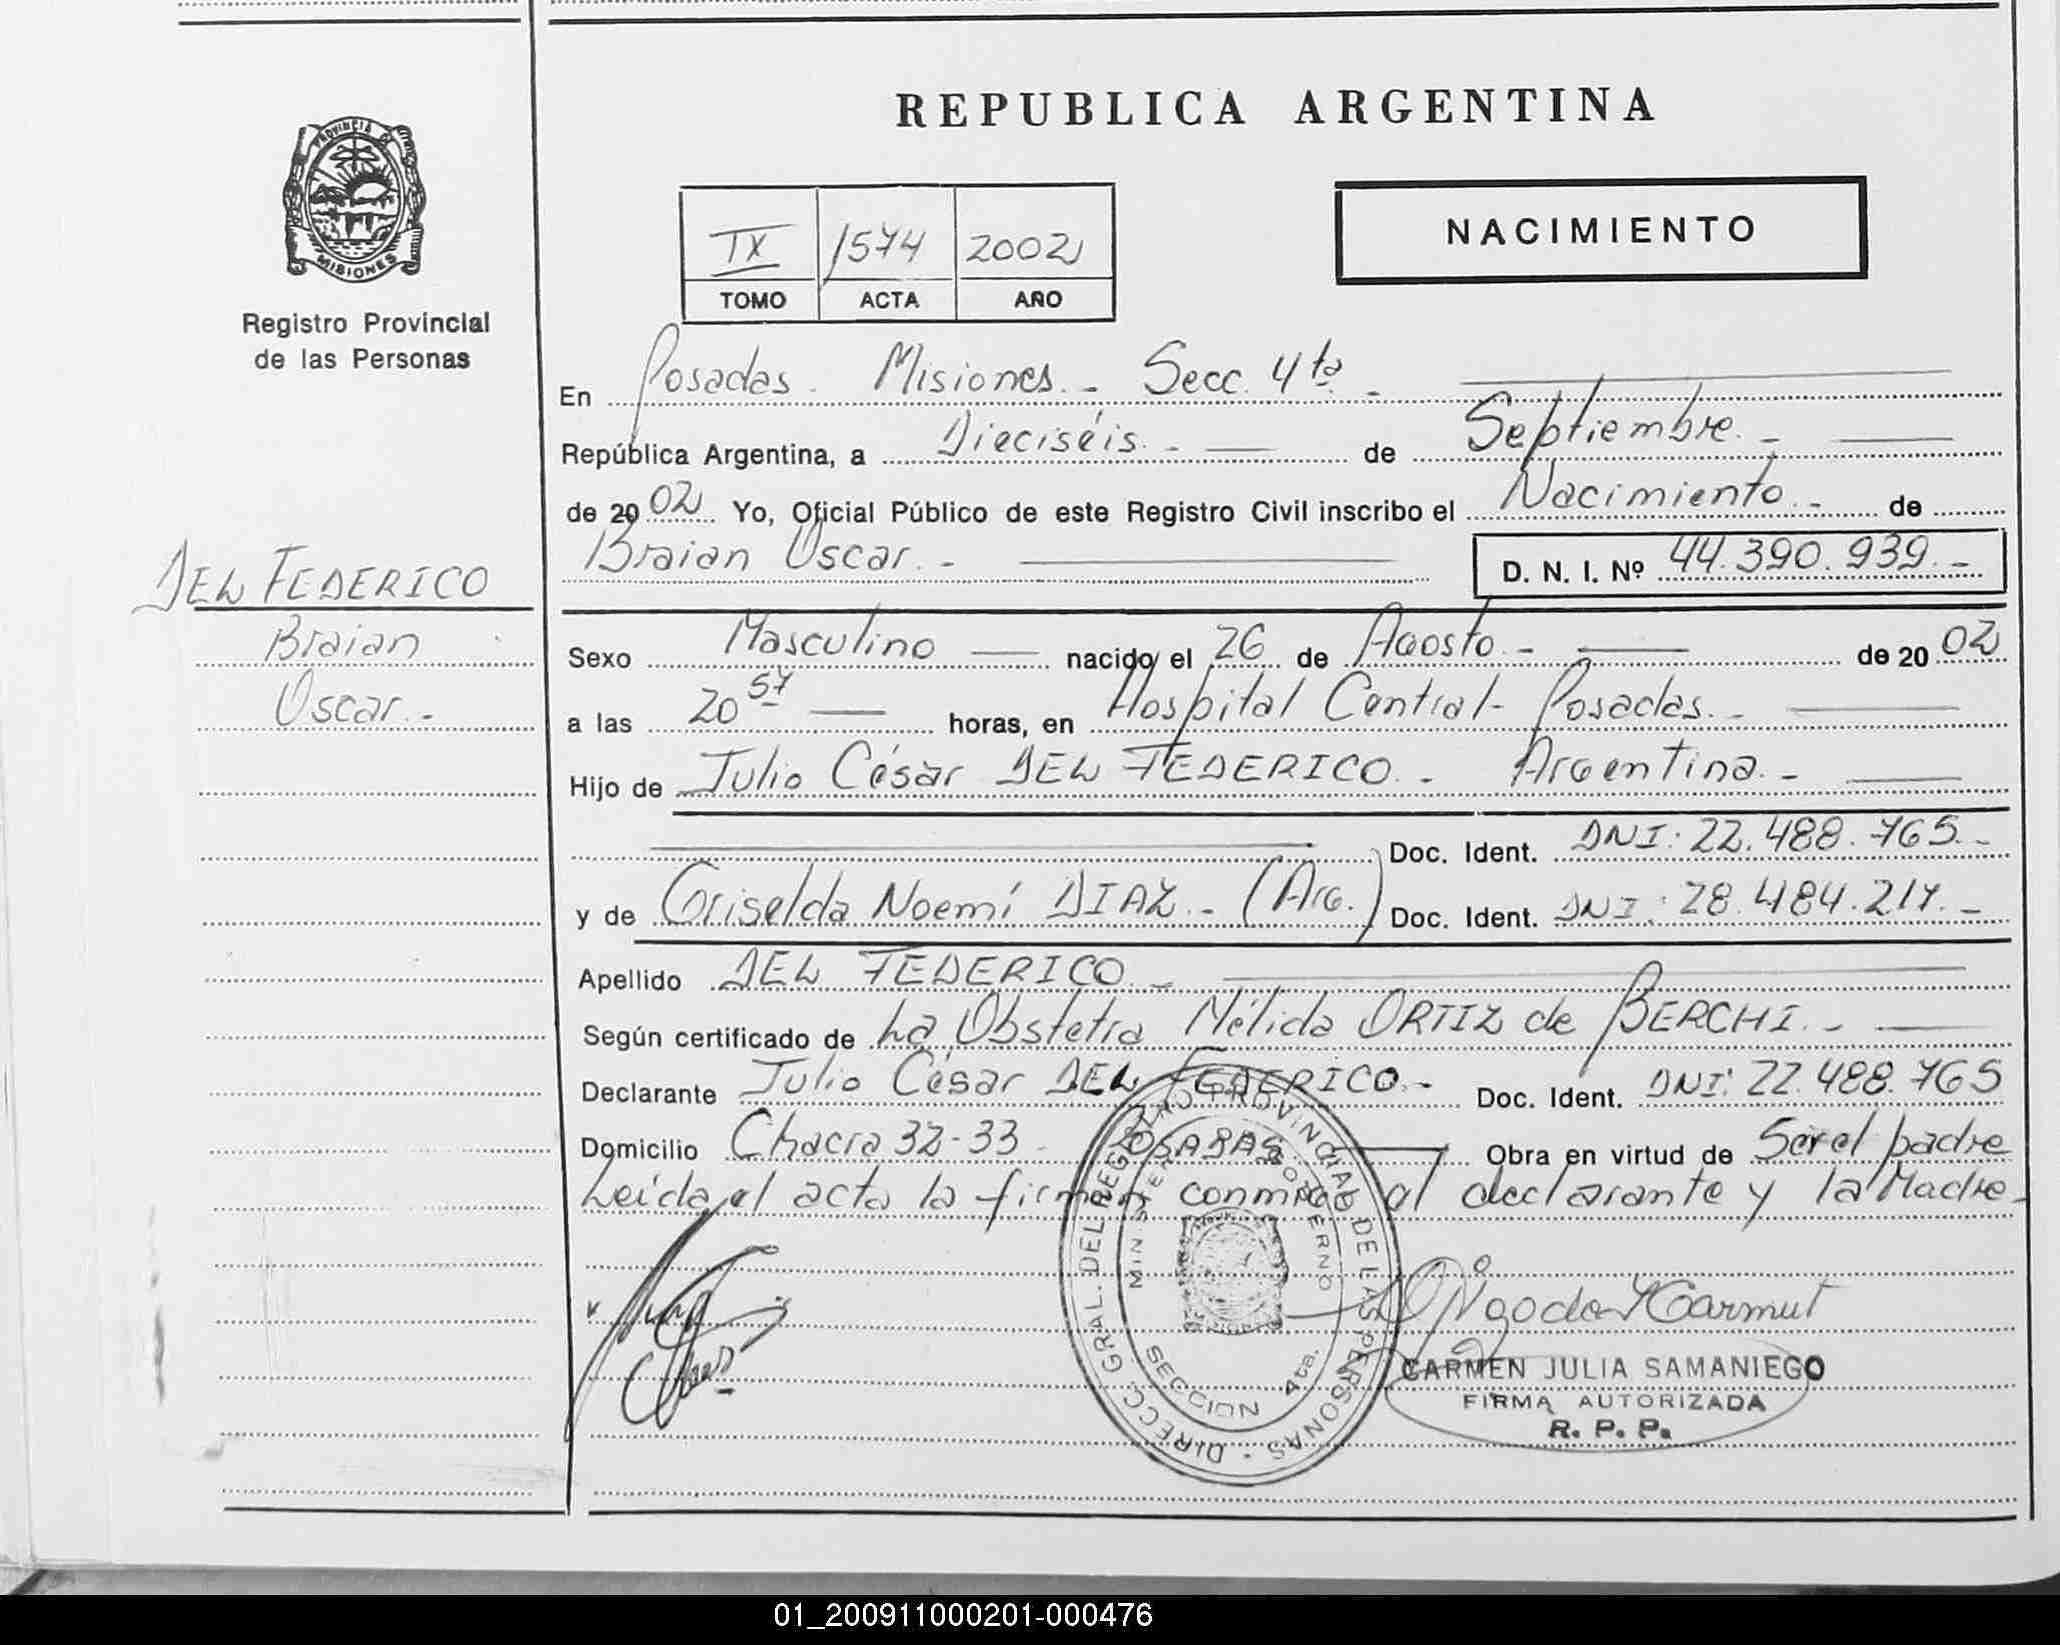 REPUBLICA ARGENTINA
PROVINCIA DE
MISIONES
Registro Provincial
de las Personas
NACIMIENTO
IX 1574 2002
TOMO ACTA AÑO
En Posadas. Misiones. - Secc. 4ta -
República Argentina, a Dieciséis. - de Septiembre. -
de 2002 Yo, Oficial Público de este Registro Civil inscribo el Nacimiento. - de
Braian Oscar. - D. N. I. Nº 44.390.939. -
DEL FEDERICO
Braian
Oscar. -
Sexo Masculino nacido el 26 de Agosto. - de 2002
a las 20 57 horas, en Hospital Central - Posadas. -
Hijo de Julio César DEL FEDERICO. - Argentina. -
Doc. Ident. DNI: 22.488.765. -
y de Griselda Noemí DIAZ. - (Arg.) Doc. Ident. DNI: 28.484.217. -
Apellido DEL FEDERICO. -
Según certificado de La Obstetra Mélida ORTIZ de BERCHI. -
Declarante Julio César DEL FEDERICO. - Doc. Ident. DNI: 22.488.765
Domicilio Chacra 32-33 - POSADAS Obra en virtud de Ser el padre
Leída el acta la firman conmigo el declarante y la Madre.
DIRECC. GRAL. DEL REGISTRO PROVINCIAL DE LAS PERSONAS
MINISTERIO DE GOBIERNO
SECCION 4ta.
CARMEN JULIA SAMANIEGO
FIRMA AUTORIZADA
R. P. P.
01_200911000201-000476